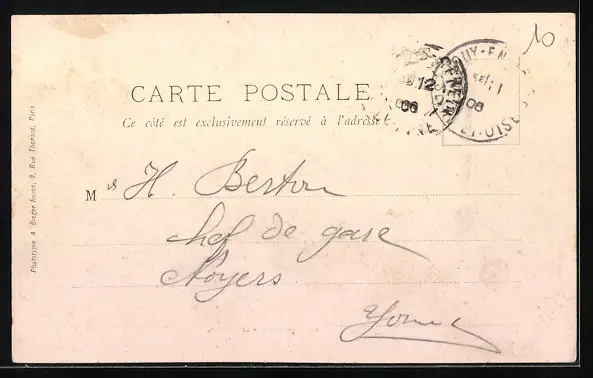 10
CARTE POSTALE
Ce côté est exclusivement réservé à l'adresse
12
06
06
OISE
M rs H. Berton
chef de gare
Noyers
Yonne
Phototypie A. Breger Frères, 9, Rue Thénard, Paris